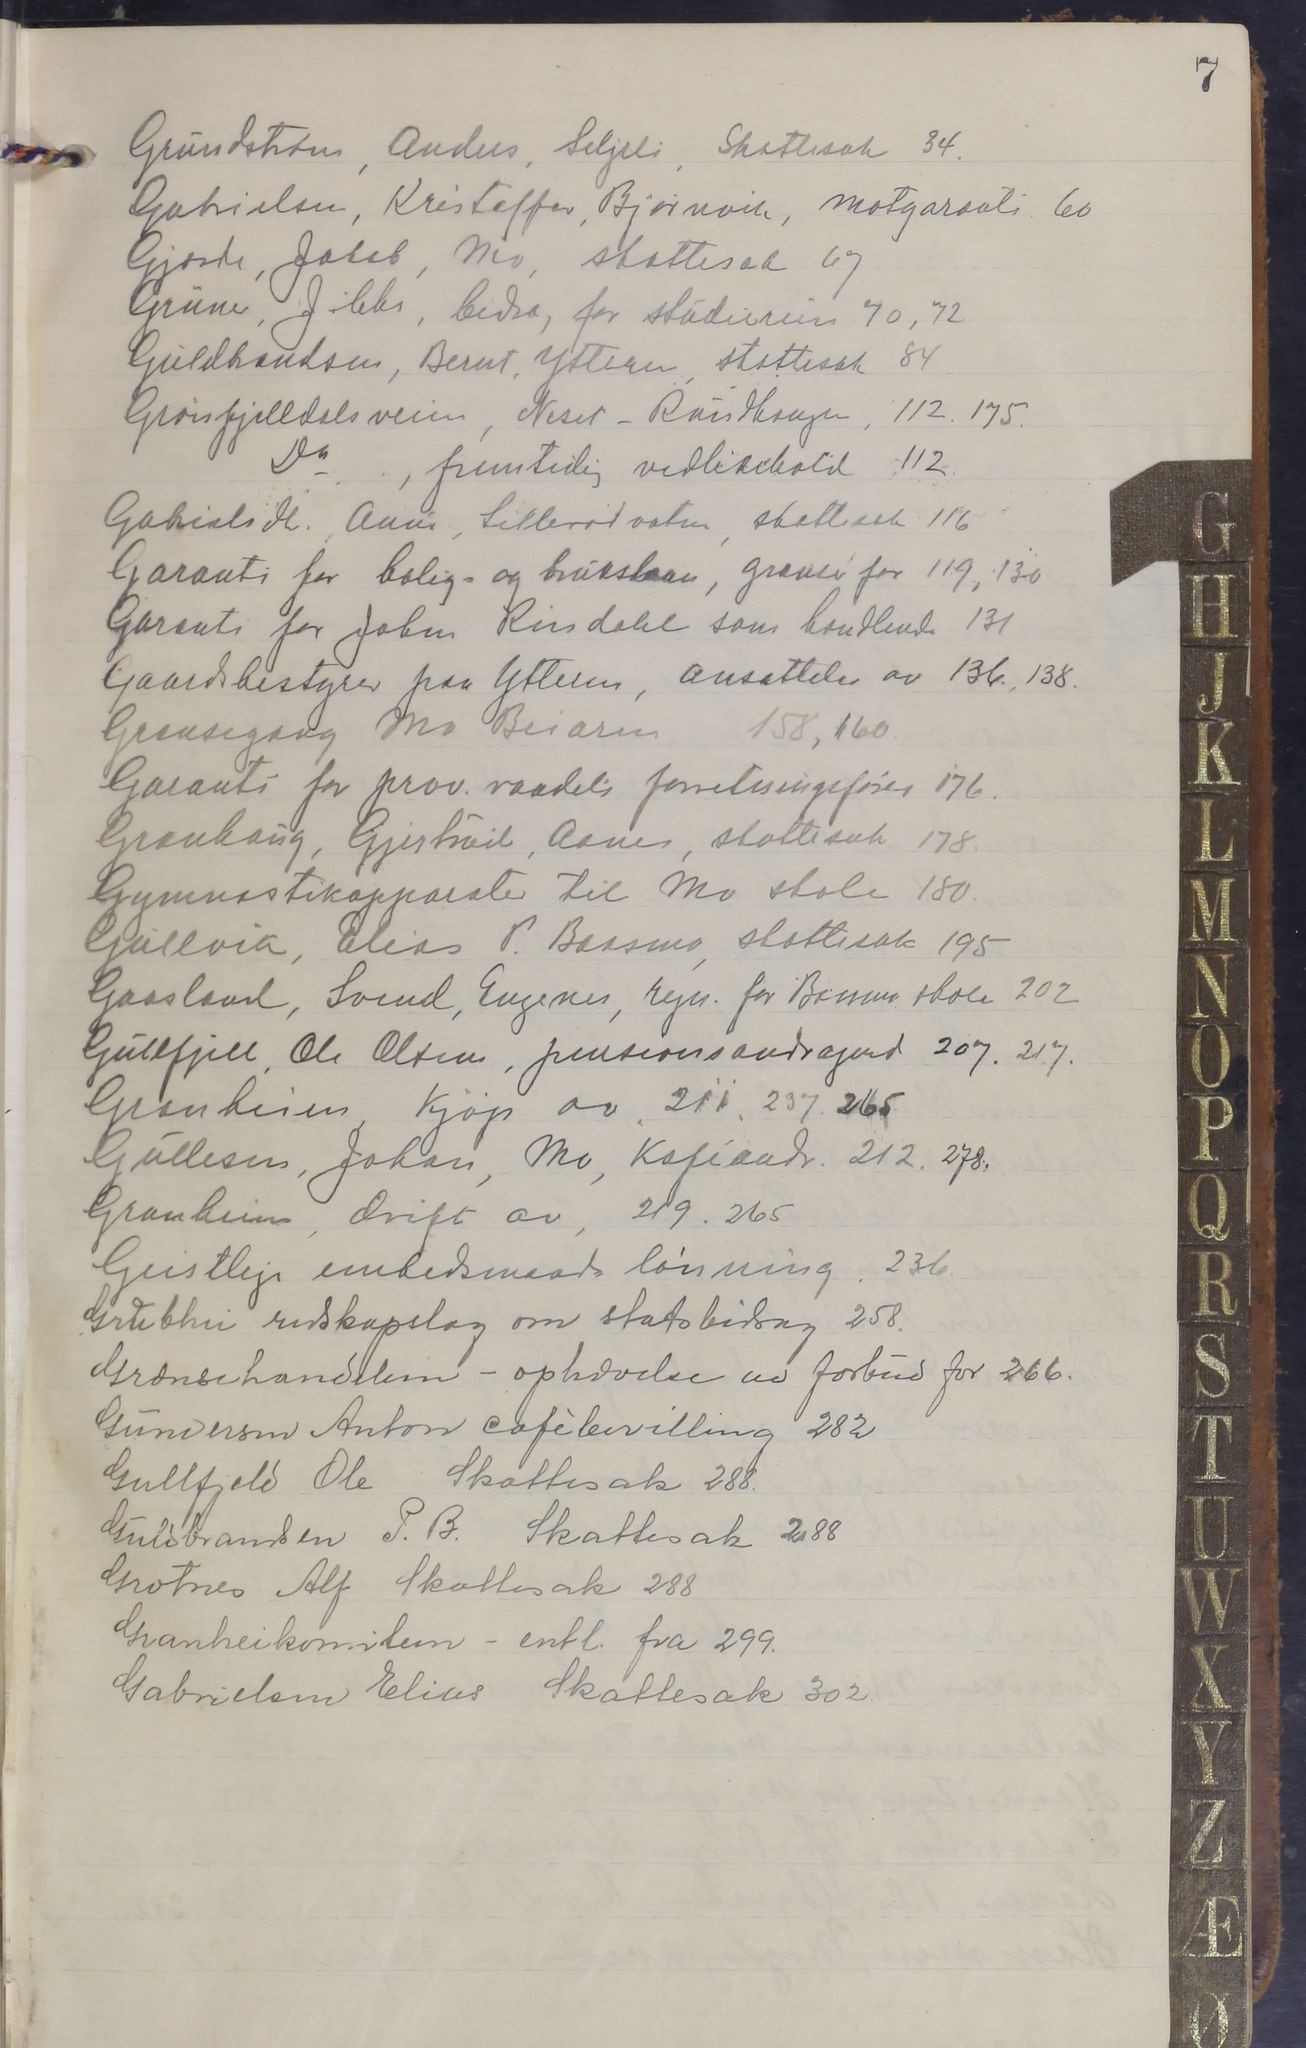 7
Grundstrøm, Anders, Seljeli, Skattesak 34.
Gabrielsen, Kristoffer, Bjørnvik, motgaranti 60
Gjæsde, Jakob, Mo, skattesak 67
Grüner, bidrag for studiereise 70, 72
Guldbrandsen, Bernt, Ytteren, skattesak 84
Grønfjelldalsveien, Neset - Raudhaugen, 112. 175.
Do , fremtidig vedlikehold 112.
Gabrielsdt. Anne, skattesak 116
Garanti for bolig- og brukslaan, grense for 119, 130
Garanti for Johan Rindahl som handlende 131
Gaardsbestyrer paa Ytteren, ansættelse av 136, 138.
Grensegang Mo Beiaren 158, 160.
Garanti for prov. raadets forretningsfører 176.
Granhaug, Gjertrud, Aanes, skattesak 178.
Gymnastikapparater til Mo skole 180.
Gullvik, Elias P. Baasmo, skattesak 195
Gaasland, Svend, Eugenes, regn. for Baasmo skole 202
Gullfjell, Ole Olsen, pensionsandragend 207. 217.
Granheien, kjøp av, 211. 237. 265
Gullesen, Johan, Mo, Kaféandr. 212. 278.
Granheim, drift av, 219. 265
Geistlige embedsmænds lønning. 236.
Grubhei redskapslag om statsbidrag 258.
Grænsehandelen - ophævelse av forbud for 266.
Gundersen Anton cafèbevilling 282
Gullfjeld Ole Skattesak 288.
Guldbrandsen P. B. Skattesak 288
Grotnes Alf Skattesak 288
Granheikomiteen - entl. fra 299.
Gabrielsen Elias Skattesak 302
G
H
J
K
L
M
N
O
P
Q
R
S
T
U
W
X
Y
Z
Æ
Ø